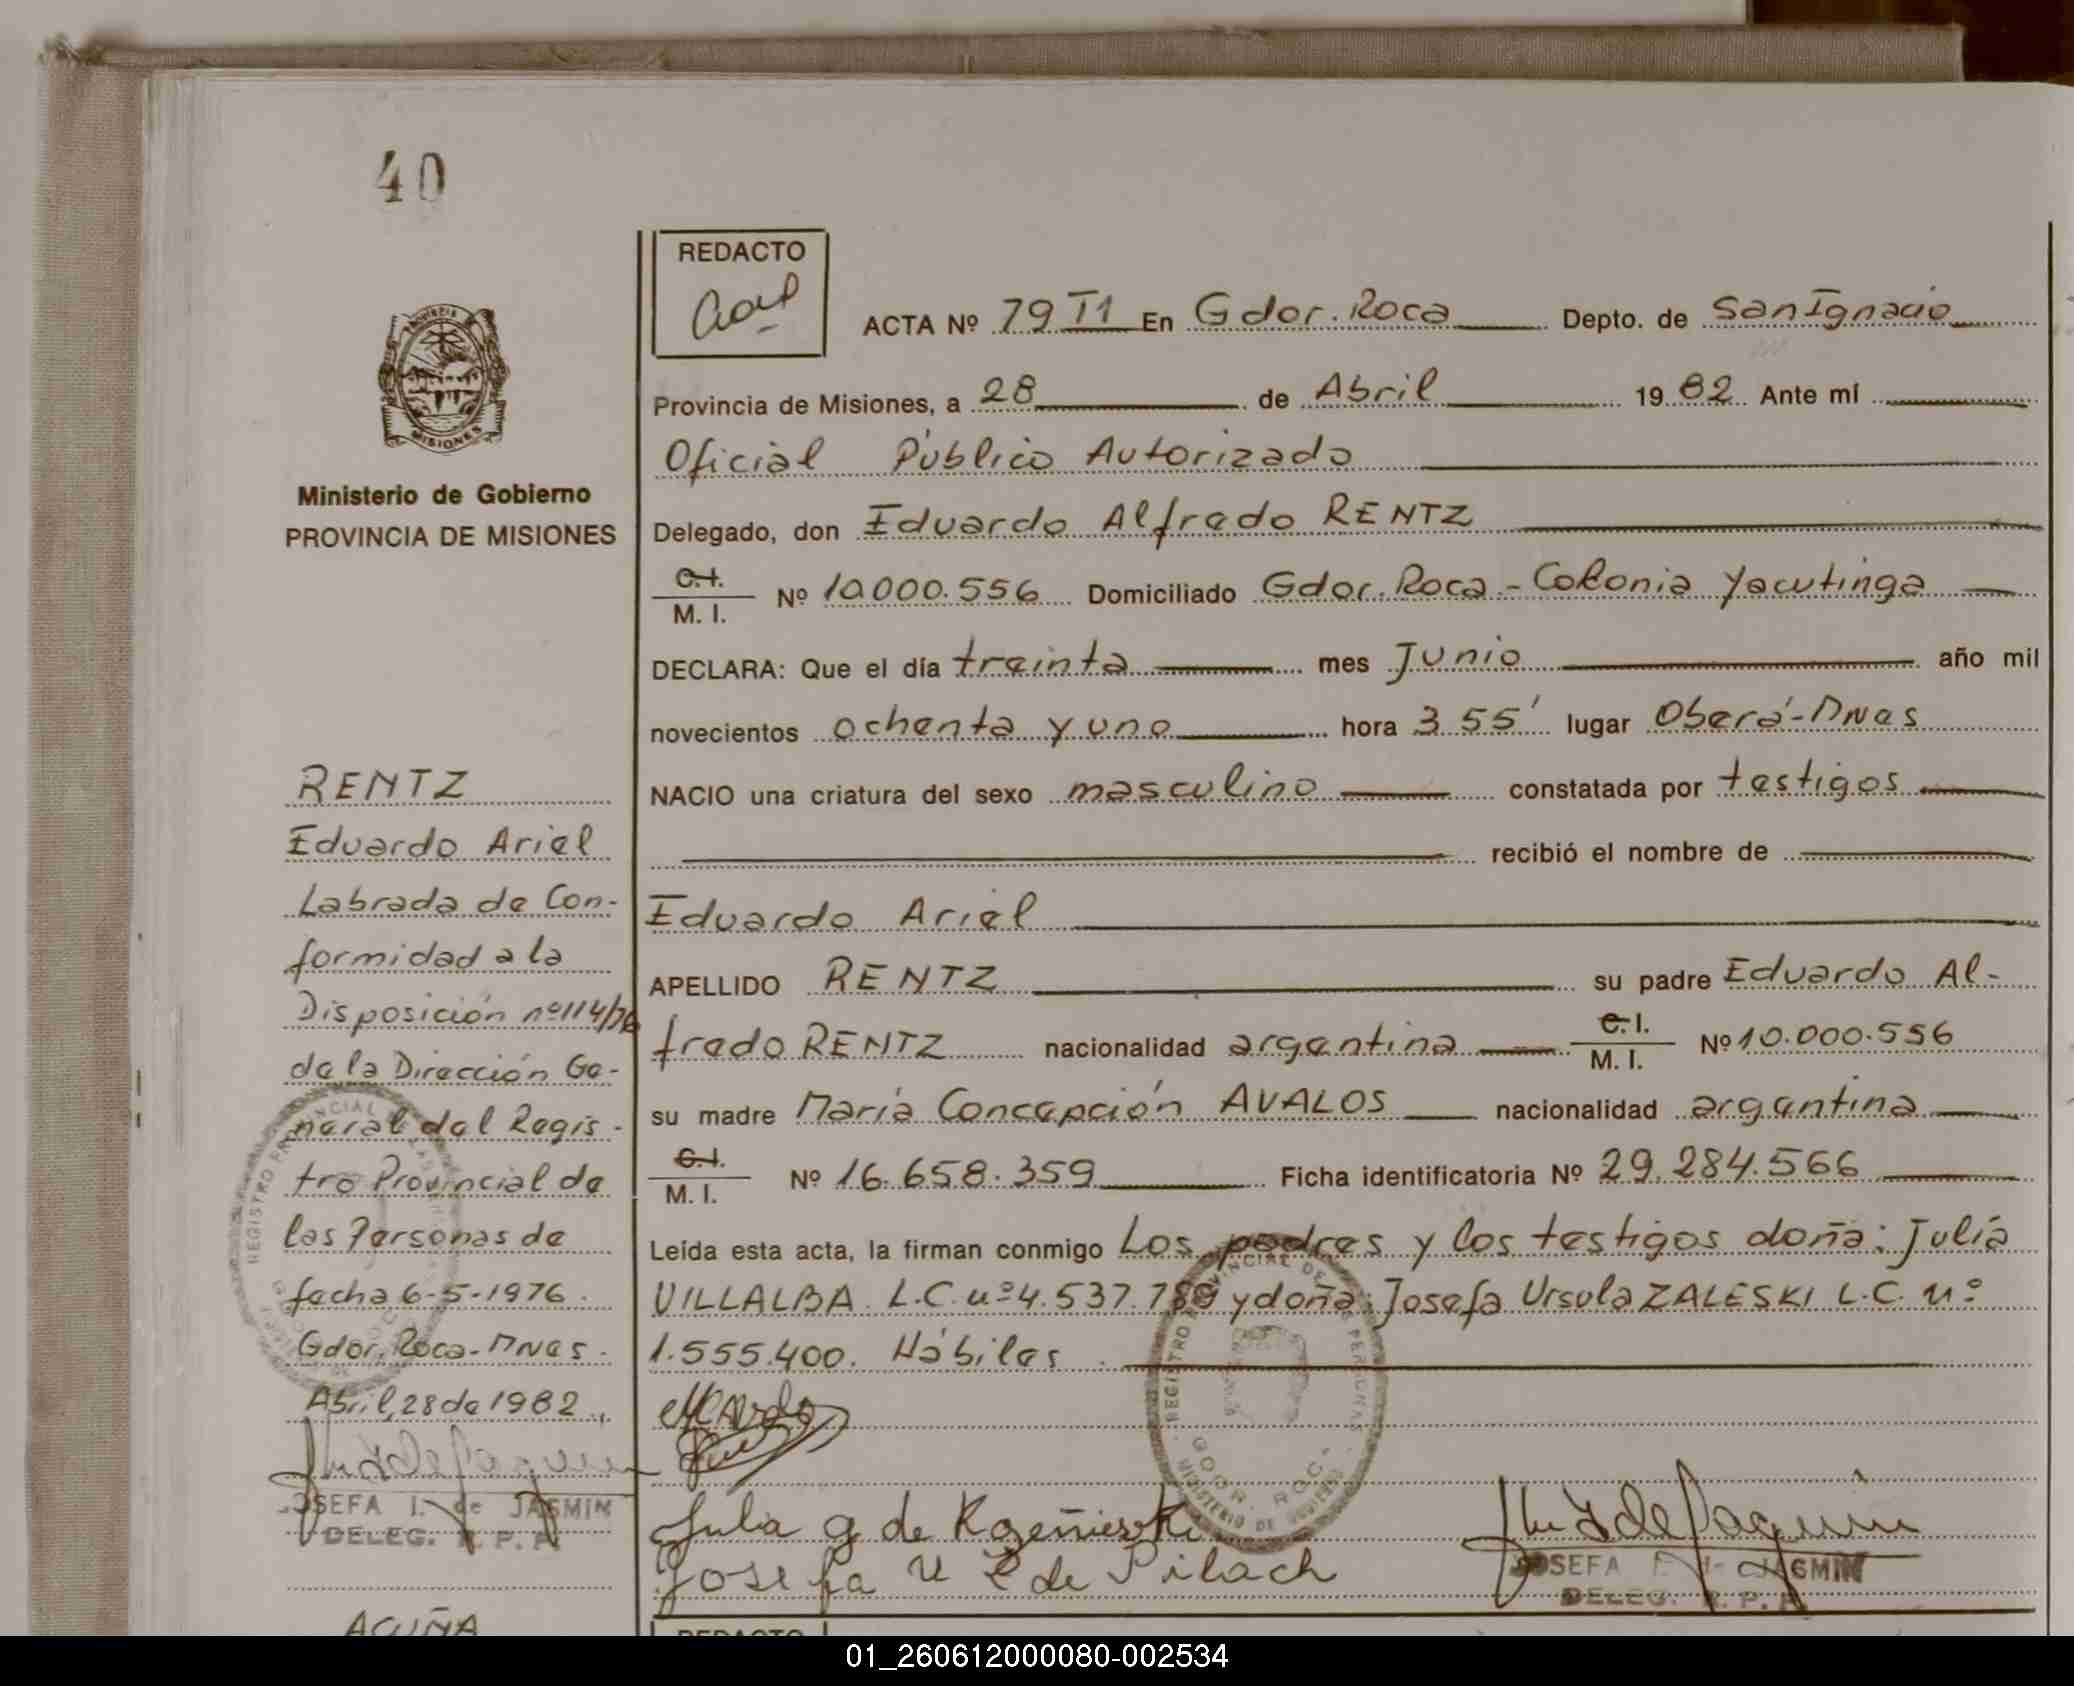 40
REDACTO
ACTA Nº 79 T1 En Gdor. Roca Depto. de San Ignacio
Provincia de Misiones, a 28 de Abril 1982 Ante mí
Oficial Público Autorizado
Delegado, don Eduardo Alfredo RENTZ
C.I. M. I. Nº 10.000.556 Domiciliado Gdor. Roca - Colonia Yacutinga
DECLARA: Que el día treinta mes Junio año mil
novecientos ochenta y uno hora 3 55' lugar Oberá-Mnes
NACIO una criatura del sexo masculino constatada por testigos
recibió el nombre de
Eduardo Ariel
APELLIDO RENTZ su padre Eduardo Al-
fredo RENTZ nacionalidad argentina C.I. M. I. Nº 10.000.556
su madre María Concepción AVALOS nacionalidad argentina
C.I. M. I. Nº 16.658.359 Ficha identificatoria Nº 29.284.566
Leída esta acta, la firman conmigo Los padres y los testigos doña: Julia
VILLALBA L.C. nº 4.537.789 y doña: Josefa Ursula ZALESKI L.C. nº
1.555.400. Hábiles.
Josefa U Z de Pilach
JOSEFA I. de JASMIN
DELEG. R. P. P.
MISIONES
Ministerio de Gobierno
PROVINCIA DE MISIONES
RENTZ
Eduardo Ariel
Labrada de Con-
formidad a la
Disposición nº 114/76
de la Dirección Ge-
neral del Regis-
tro Provincial de
las Personas de
fecha 6-5-1976.
Gdor. Roca-Mnes.
Abril, 28 de 1982.
JOSEFA I. de JASMIN
DELEG. R. P. P.
ACUÑA
REDACTO
REGISTRO PROVINCIAL DE LAS PERSONAS
GDOR. ROCA
MINISTERIO DE GOBIERNO
01_260612000080-002534